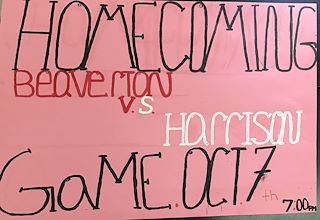 HOMECOMING
BEAVERTON
V.S.
HARRISON
GAME.OCT.7th
7:00PM